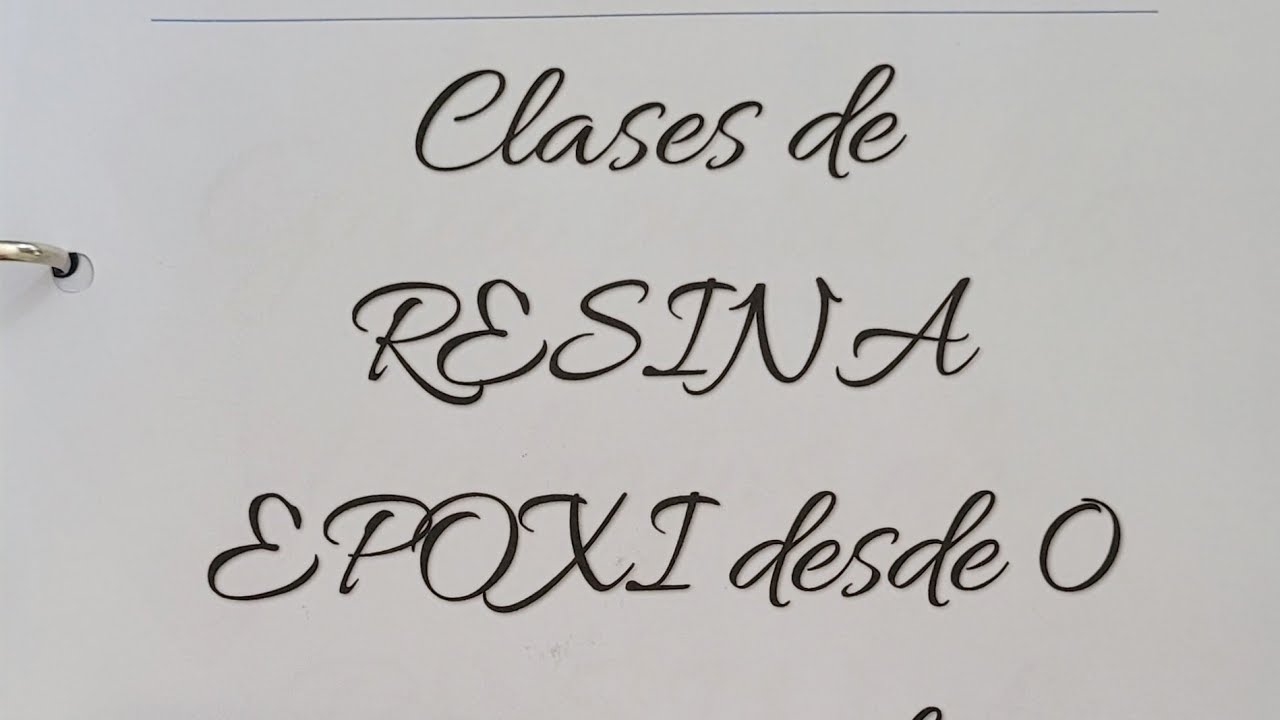 Clases de
RESINA
EPOXI desde 0